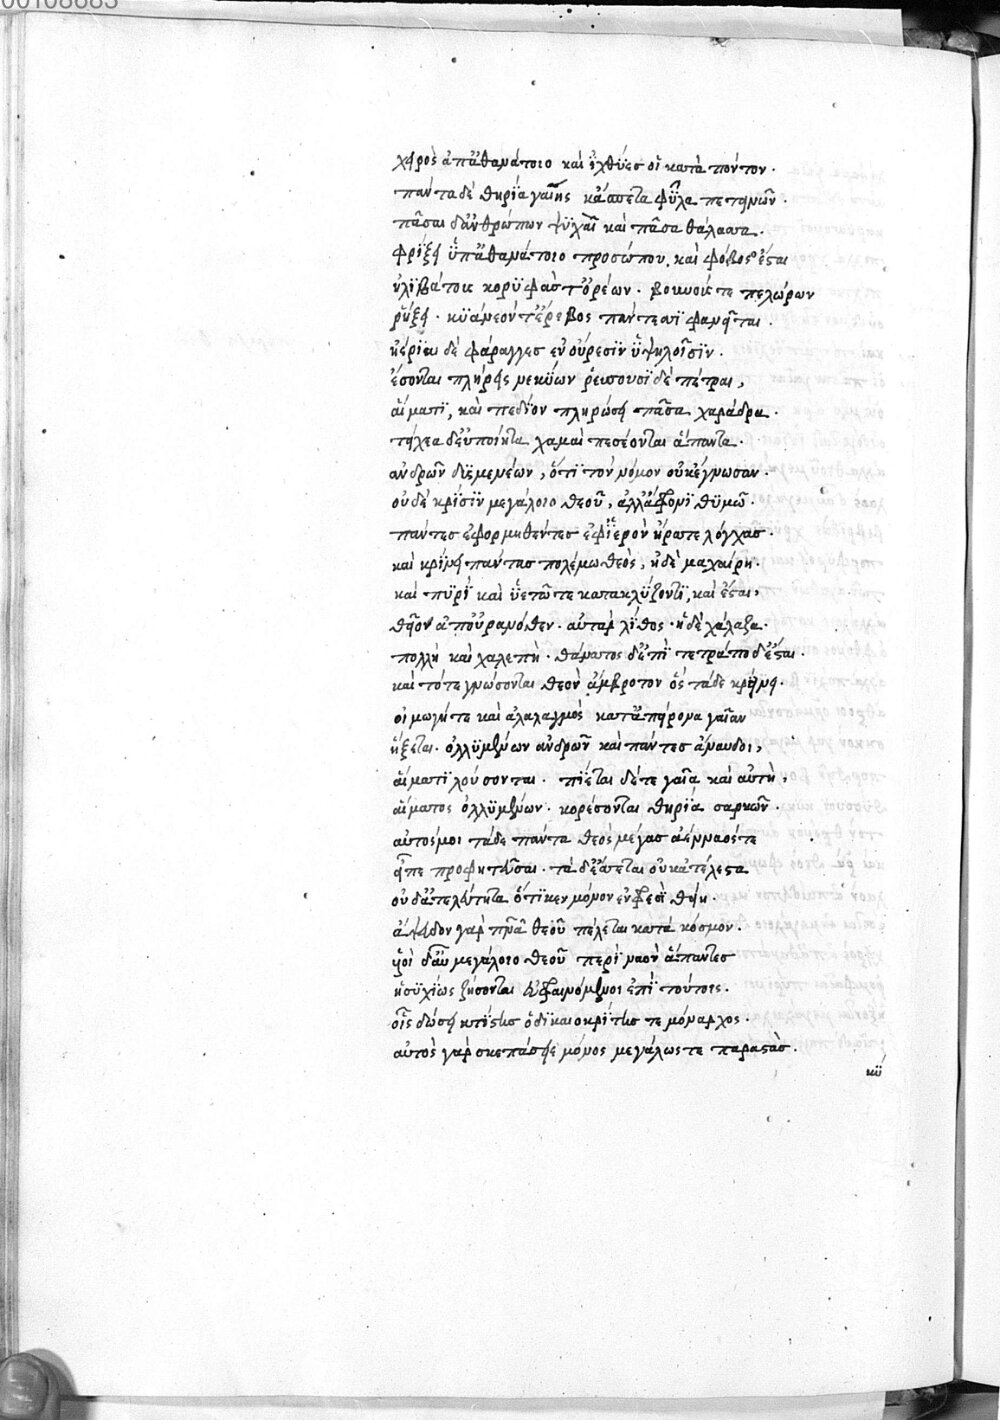 00108685
χειρὸς ἀπ' ἀθανάτοιο καὶ ἰχθύες οἱ κατὰ πόντον.
πάντα δὲ θηρία γαίης κἄσπετα φῦλα πετεινῶν.
πᾶσαι δ' ἀνθρώπων ψυχαὶ καὶ πᾶσα θάλασσα.
φρίξει ὑπ' ἀθανάτοιο προσώπου. καὶ φόβος ἔσται
ἠλιβάτοις κορυφάς τ' ὀρέων. βουνούς τε πελώρων
ῥήξει. κυάνεόν τ' ἔρεβος πάντεσσι φανεῖται.
ἠέριαι δὲ φάραγγες ἐν οὔρεσιν ὑψηλοῖσιν.
ἔσονται πλήρεις νεκύων ῥεύσουσι δὲ πέτραι,
αἵματι, καὶ πεδίον πληρώσει πᾶσα χαράδρα.
τείχεα δ' εὐποίητα χαμαὶ πεσέονται ἅπαντα.
ἀνδρῶν δυσμενέων, ὅτι τὸν νόμον οὐκ ἔγνωσαν.
οὐδὲ κρίσιν μεγάλοιο θεοῦ, ἀλλ' ἄφρονι θυμῷ.
πάντες ἐφορμηθέντες ἐφ' ἱερὸν ἤρατε λόγχας.
καὶ κρίνει πάντας πολέμω θεὸς, ἠδὲ μαχαίρη.
καὶ πυρὶ καὶ ὑετῶ τε κατακλύζοντι, καὶ ἔσται,
θεῖον ἀπ' οὐρανόθεν. αὐτὰρ λίθος. ἠδὲ χάλαζα.
πολλὴ καὶ χαλεπή. θάνατος δ' ἐπὶ τετράποδ' ἔσται.
καὶ τότε γνώσονται θεὸν ἄμβροτον ὃς τάδε κρίνει.
οἰμωγή τε καὶ ἀλαλαγμὸς κατ' ἀπείρονα γαῖαν
ἥξεται. ὀλλυμένων ἀνδρῶν καὶ πάντες ἄναυδοι,
αἵματι λούσονται. πίεται δέ τε γαῖα καὶ αὐτή,
αἵματος ὀλλυμένων. κορέσονται θηρία σαρκῶν.
αὐτός μοι τάδε πάντα θεὸς μέγας ἀέννaός τε
εἶπε προφητεῦσαι. τὰ δ' ἔσσεται οὐκ ἀτέλεστα
οὐδ' ἀτελεύτητα ὅτι κεν μόνον ἐν φρεσὶ θείη.
ἄψευδον γὰρ πνεῦμα θεοῦ πέλεται κατὰ κόσμον.
υἱοὶ δ' αὖ μεγάλοιο θεοῦ περὶ ναὸν ἅπαντες
ἡσυχίως ζήσονται εὐφραινόμενοι ἐπὶ τούτοις.
οἷς δώσει κτίστης ὁ δικαιοκρίτης τε μόναρχος.
αὐτὸς γὰρ σκεπάσειε μόνος μεγάλως τε παραστάς.
κύ